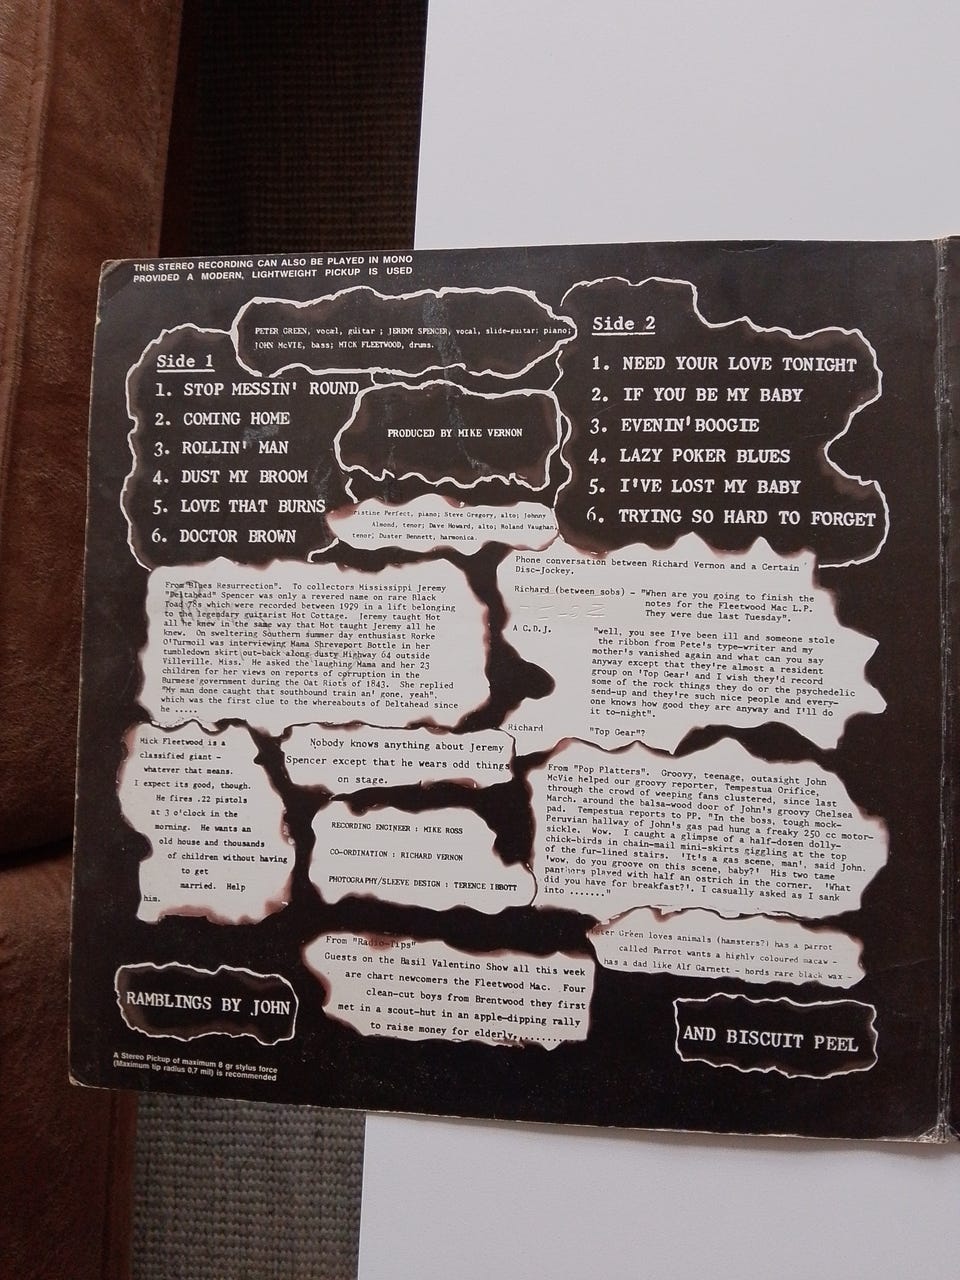 THIS STEREO RECORDING CAN ALSO BE PLAYED IN MONO
PROVIDED A MODERN, LIGHTWEIGHT PICKUP IS USED
PETER GREEN, vocal, guitar ; JEREMY SPENCER, vocal, slide-guitar; piano;
JOHN McVIE, bass; MICK FLEETWOOD, drums.
Side 1
1. STOP MESSIN' ROUND
2. COMING HOME
3. ROLLIN' MAN
4. DUST MY BROOM
5. LOVE THAT BURNS
6. DOCTOR BROWN
PRODUCED BY MIKE VERNON
Side 2
1. NEED YOUR LOVE TONIGHT
2. IF YOU BE MY BABY
3. EVENIN' BOOGIE
4. LAZY POKER BLUES
5. I'VE LOST MY BABY
6. TRYING SO HARD TO FORGET
ristine Perfect, piano; Steve Gregory, alto; Johnny
Almond, tenor; Dave Howard, alto; Roland Vaughan,
tenor; Duster Bennett, harmonica.
From "Blues Resurrection". To collectors Mississippi Jeremy
"Deltahead" Spencer was only a revered name on rare Black
Toad 78s which were recorded between 1929 in a lift belonging
to the legendary guitarist Hot Cottage. Jeremy taught Hot
all he knew in the same way that Hot taught Jeremy all he
knew. On sweltering Southern summer day enthusiast Rorke
O'Turmoil was interviewing Mama Shreveport Bottle in her
tumbledown skirt out-back along dusty Highway 64 outside
Villeville. Miss. He asked the laughing Mama and her 23
children for her views on reports of corruption in the
Burmese government during the Oat Riots of 1843. She replied
"My man done caught that southbound train an' gone, yeah".
which was the first clue to the whereabouts of Deltahead since
he .....
Phone conversation between Richard Vernon and a Certain
Disc-Jockey.
Richard (between sobs) - "When are you going to finish the
notes for the Fleetwood Mac L.P.
They were due last Tuesday".
A C.D.J. "well, you see I've been ill and someone stole
the ribbon from Pete's type-writer and my
mother's vanished again and what can you say
anyway except that they're almost a resident
group on 'Top Gear' and I wish they'd record
some of the rock things they do or the psychedelic
send-up and they're such nice people and every-
one knows how good they are anyway and I'll do
it to-night".
Richard "Top Gear"?
Mick Fleetwood is a
classified giant -
whatever that means.
I expect its good, though.
He fires .22 pistols
at 3 o'clock in the
morning. He wants an
old house and thousands
of children without having
to get
married. Help
him.
Nobody knows anything about Jeremy
Spencer except that he wears odd things
on stage.
RECORDING ENGINEER : MIKE ROSS
CO-ORDINATION : RICHARD VERNON
PHOTOGRAPHY/SLEEVE DESIGN : TERENCE IBBOTT
From "Pop Platters". Groovy, teenage, outasight John
McVie helped our groovy reporter, Tempestua Orifice,
through the crowd of weeping fans clustered, since last
March. around the balsa-wood door of John's groovy Chelsea
pad. Tempestua reports to PP. "In the boss, tough mock-
Peruvian hallway of John's gas pad hung a freaky 250 cc motor-
sickle. Wow. I caught a glimpse of a half-dozen dolly-
chick-birds in chain-mail mini-skirts giggling at the top
of the fur-lined stairs. 'It's a gas scene, man'. said John.
'wow, do you groove on this scene, baby?' His two tame
panthers played with half an ostrich in the corner. 'What
did you have for breakfast?'. I casually asked as I sank
into ......."
eter Green loves animals (hamsters?) has a parrot
called Parrot wants a highly coloured macaw -
has a dad like Alf Garnett - hords rare black wax -
From "Radio-Tips"
Guests on the Basil Valentino Show all this week
are chart newcomers the Fleetwood Mac. Four
clean-cut boys from Brentwood they first
met in a scout-hut in an apple-dipping rally
to raise money for elderly...........
RAMBLINGS BY JOHN
AND BISCUIT PEEL
A Stereo Pickup of maximum 8 gr stylus force
(Maximum tip radius 0,7 mil) is recommended